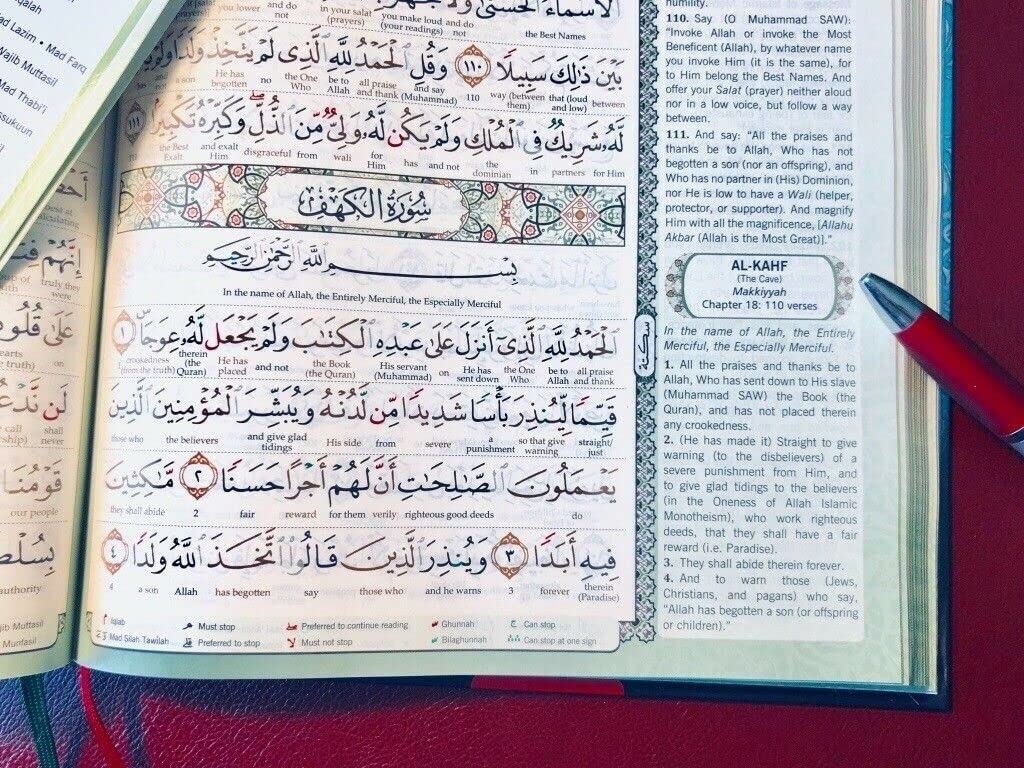 qalah
ad Lazim • Mad Farq
Wajib Muttasil
Mad Thabi'i
ssukuun
الأسماء الحسنى ولا تجهر
the Best Names not you make loud and do (your readings) in your salat (prayers) and do not you lower
بَيْنَ ذَٰلِكَ سَبِيلًا ١١٠ وَقُلِ الْحَمْدُ لِلَّهِ الَّذِي لَمْ يَتَّخِذْ وَلَدًا
between that (loud and low) way (between them) 110 and say (Muhammad) all praise and thank be to Allah the One Who no He has begotten a son
لَهُ شَرِيكٌ فِي الْمُلْكِ وَلَمْ يَكُنْ لَهُ وَلِيٌّ مِنَ الذُّلِّ وَكَبِّرْهُ تَكْبِيرًا ١١١
for Him partners in the dominian and not has for Him wali from disgraceful and exalt Him the Best Exalt
سُورَةُ الْكَهْفِ
بِسْمِ اللَّهِ الرَّحْمَٰنِ الرَّحِيمِ
In the name of Allah, the Entirely Merciful, the Especially Merciful
الْحَمْدُ لِلَّهِ الَّذِي أَنْزَلَ عَلَىٰ عَبْدِهِ الْكِتَابَ وَلَمْ يَجْعَلْ لَهُ عِوَجًا ١
all praise and thank be to Allah the One Who He has sent down on His servant (Muhammad) the Book (the Quran) and not He has placed therein (the Quran) crookedness (from the truth)
قَيِّمًا لِيُنْذِرَ بَأْسًا شَدِيدًا مِنْ لَدُنْهُ وَيُبَشِّرَ الْمُؤْمِنِينَ الَّذِينَ
straight/ just so that give warning a punishment severe from His side and give glad tidings the believers those who
يَعْمَلُونَ الصَّالِحَاتِ أَنَّ لَهُمْ أَجْرًا حَسَنًا ٢ مَاكِثِينَ
do righteous good deeds verily for them reward fair 2 they shall abide
فِيهِ أَبَدًا ٣ وَيُنْذِرَ الَّذِينَ قَالُوا اتَّخَذَ اللَّهُ وَلَدًا ٤
therein (Paradise) forever 3 and he warns those who say has begotten Allah a son 4
Iqlab Must stop Preferred to continue reading Ghunnah Can stop
Mad Silah Tawilah Preferred to stop Must not stop Bilaghunnah Can stop at one sign
humility.
110. Say (O Muhammad SAW):
"Invoke Allah or invoke the Most
Beneficent (Allah), by whatever name
you invoke Him (it is the same), for
to Him belong the Best Names. And
offer your Salat (prayer) neither aloud
nor in a low voice, but follow a way
between.
111. And say: "All the praises and
thanks be to Allah, Who has not
begotten a son (nor an offspring), and
Who has no partner in (His) Dominion,
nor He is low to have a Wali (helper,
protector, or supporter). And magnify
Him with all the magnificence, [Allahu
Akbar (Allah is the Most Great)]."
AL-KAHF
(The Cave)
Makkiyyah
Chapter 18: 110 verses
In the name of Allah, the Entirely
Merciful, the Especially Merciful.
1. All the praises and thanks be to
Allah, Who has sent down to His slave
(Muhammad SAW) the Book (the
Quran), and has not placed therein
any crookedness.
2. (He has made it) Straight to give
warning (to the disbelievers) of
a severe punishment from Him, and
to give glad tidings to the believers
(in the Oneness of Allah Islamic
Monotheism), who work righteous
deeds, that they shall have a fair
reward (i.e. Paradise).
3. They shall abide therein forever.
4. And to warn those (Jews,
Christians, and pagans) who say,
"Allah has begotten a son (or offspring
or children)."
سكتة
إِنَّهُمْ
truly they were
عَلَىٰ
on
لَنْ
shall never
قَوْمُنَا
our people
authority